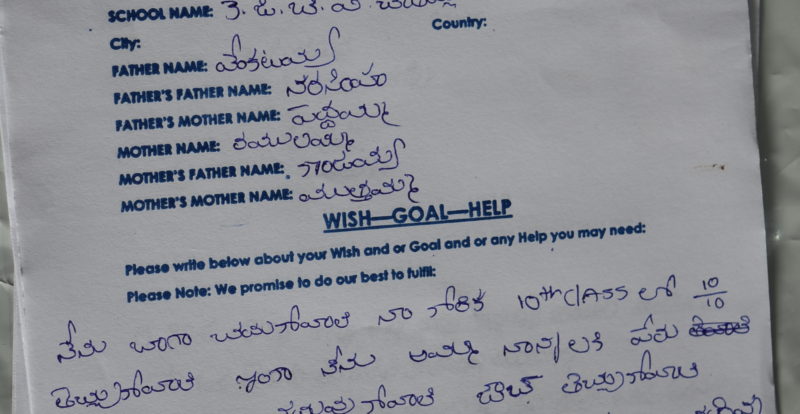 SCHOOL NAME:
Country:
City:
FATHER NAME: వెంకటయ్య
FATHER'S FATHER NAME: నరసింహ
FATHER'S MOTHER NAME:
MOTHER NAME: రాములమ్మ
MOTHER'S FATHER NAME:
MOTHER'S MOTHER NAME: ముత్తమ్మ
WISH—GOAL—HELP
Please write below about your Wish and or Goal and or any Help you may need:
Please Note: We promise to do our best to fulfil:
నేను బాగా చదువుకోవాలి నా కోరిక 10th CLASS లో 10/10
తెచ్చుకోవాలి ఇంకా నేను అమ్మ నాన్నలకి పేరు
తెచ్చుకోవాలి